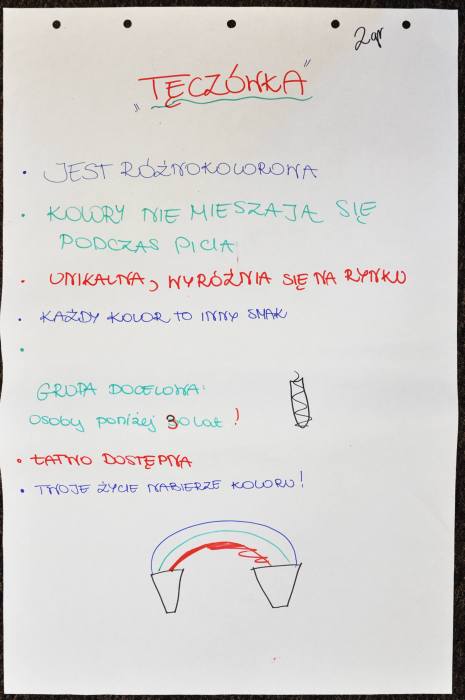 2gr
„TĘCZÓWKA"
• JEST RÓŻNOKOLOROWA
• KOLORY NIE MIESZAJĄ SIĘ
PODCZAS PICIA
• UNIKALNA, WYRÓŻNIA SIĘ NA RYNKU
• KAŻDY KOLOR TO INNY SMAK
•
GRUPA DOCELOWA:
osoby poniżej 30 lat!
• ŁATWO DOSTĘPNA
• TWOJE ŻYCIE NABIERZE KOLORU!